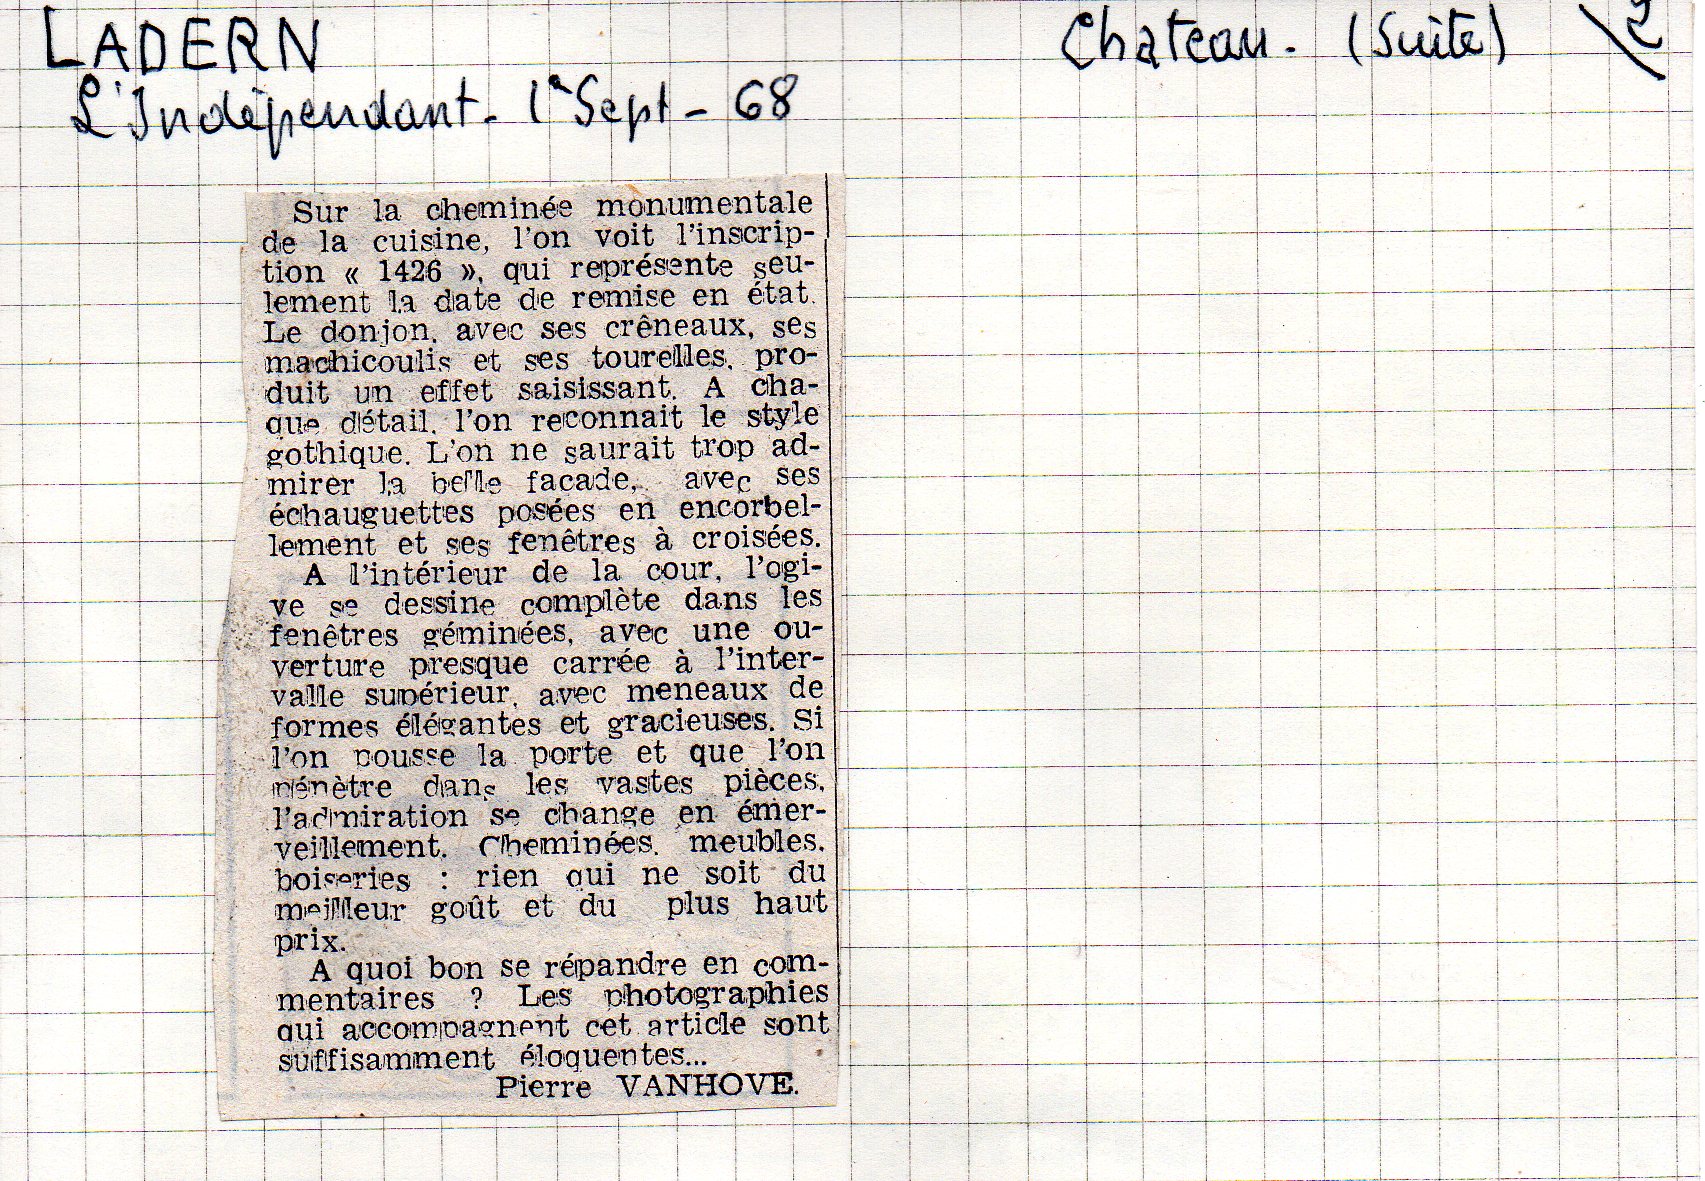 LADERN
Chateau. (Suite)
L'Indépendant. 1e Sept - 68
Sur la cheminée monumentale
de la cuisine, l'on voit l'inscrip-
tion « 1426 », qui représente seu-
lement la date de remise en état.
Le donjon, avec ses crêneaux, ses
machicoulis et ses tourelles, pro-
duit un effet saisissant. A cha-
que détail, l'on reconnait le style
gothique. L'on ne saurait trop ad-
mirer la belle facade, avec ses
échauguettes posées en encorbel-
lement et ses fenêtres à croisées.
A l'intérieur de la cour, l'ogi-
ve se dessine complète dans les
fenêtres géminées, avec une ou-
verture presque carrée à l'inter-
valle supérieur, avec meneaux de
formes élégantes et gracieuses. Si
l'on pousse la porte et que l'on
pénètre dans les vastes pièces,
l'admiration se change en émer-
veillement. Cheminées, meubles,
boiseries : rien qui ne soit du
meilleur goût et du plus haut
prix.
A quoi bon se répandre en com-
mentaires ? Les photographies
qui accompagnent cet article sont
suffisamment éloquentes...
Pierre VANHOVE.